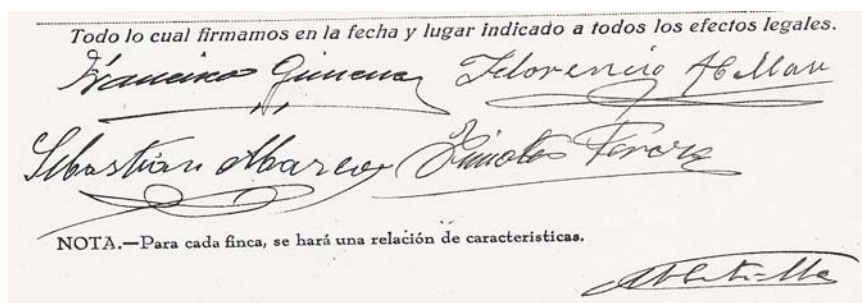 Todo lo cual firmamos en la fecha y lugar indicado a todos los efectos legales.
Francisco Gimenez Florencio Abellan
Sebastian Marco
NOTA.—Para cada finca, se hará una relación de características.